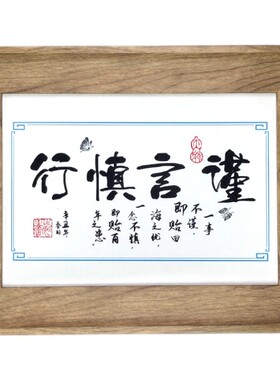 謹言慎行
一事
不谨，
即贻四
海之忧，
一念不慎，
即贻百
年之患。
辛丑年